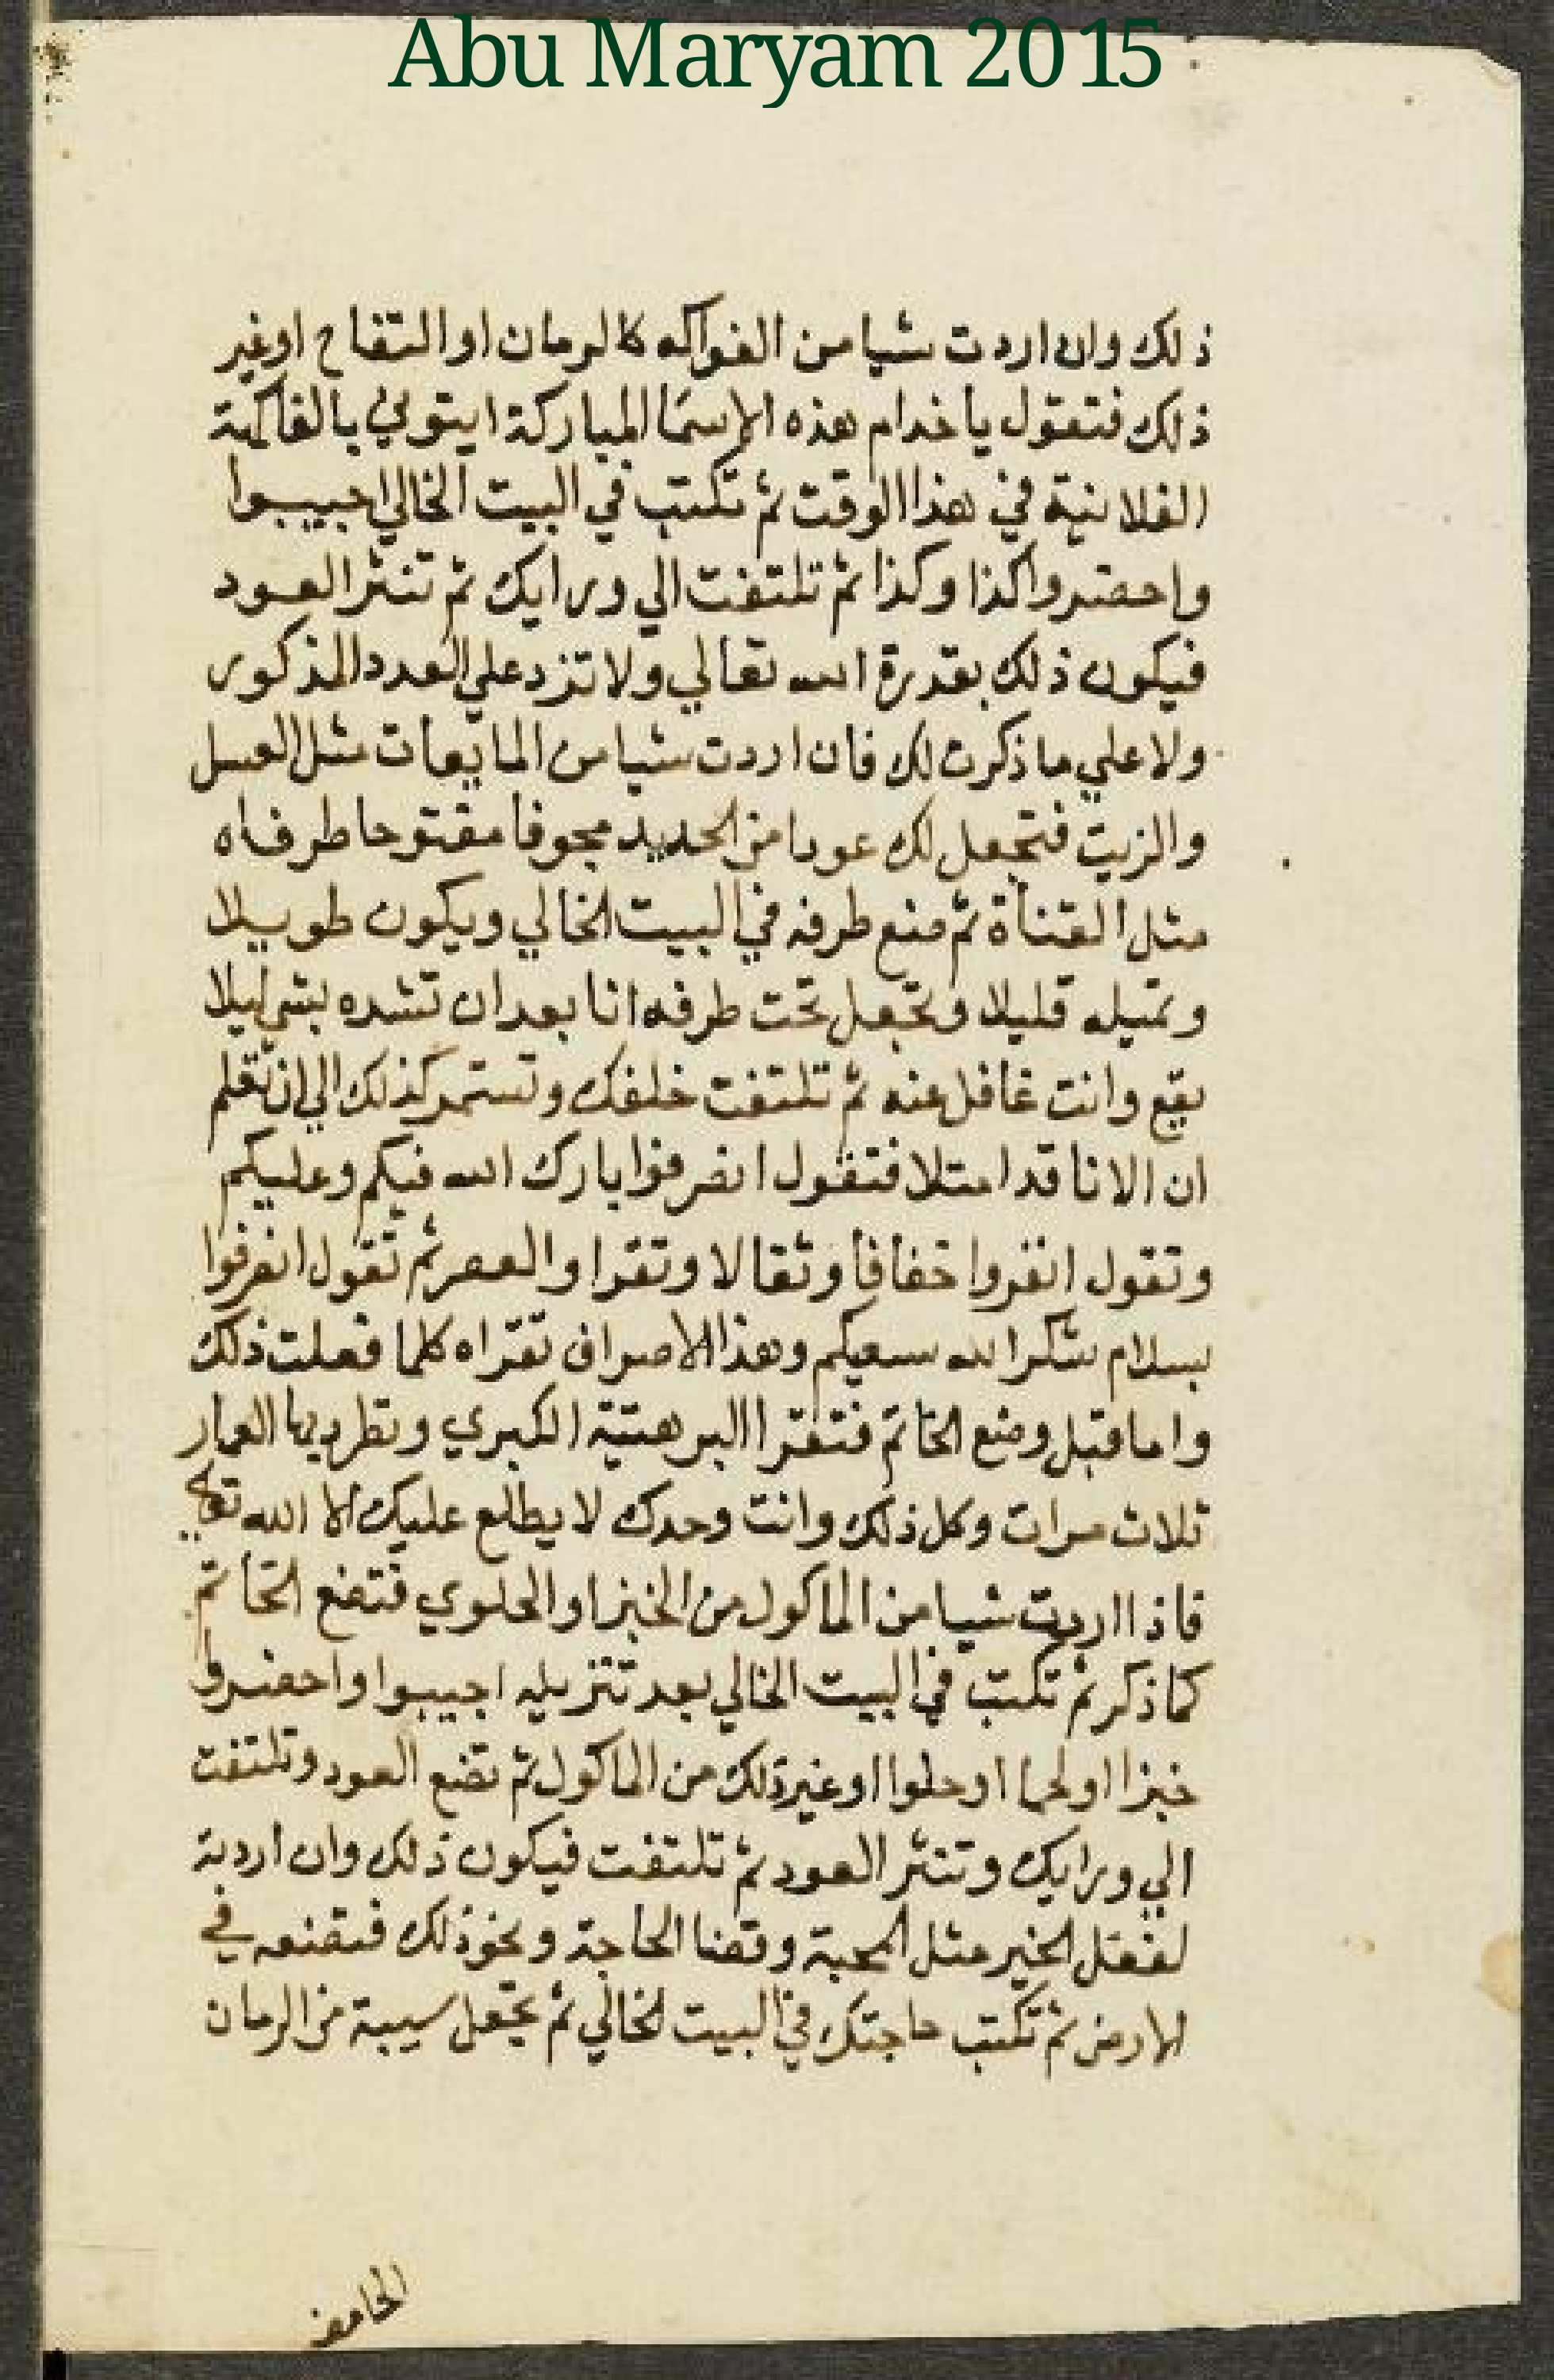 Abu Maryam 2015
ذلك وان اردت شيا من الفواكه كالرمان او التفاح او غير
ذلك فتقول يا خدام هذه الاسما المباركة ايتوني بالفاكهة
الفلانية في هذا الوقت ثم تكتب في البيت الخالي اجيبوا
واحضروا كذا وكذا ثم تلتفت الي ورايك ثم تنثر العود
فيكون ذلك بقدرة الله تعالي ولا تزد علي العدد المذكور
ولا علي ما ذكرت لك فان اردت شيا من المايعات مثل العسل
والزيت فتجعل لك عودا من الحديد مجوفا مفتوحا طرفاه
مثل القناة ثم ضع طرفه في البيت الخالي ويكون طويلا
وتميله قليلا وتجعل تحت طرفه انا بعد ان تشده بشي ليلا
يقع وانت غافل عنه ثم تلتفت خلفك وتستمر كذلك الي ان تعلم
ان الانا قد امتلا فتقول انصرفوا بارك الله فيكم وعليكم
وتقول انفروا خفافا وثقالا وتقرا والعصر ثم تقول انصرفوا
بسلام شكر الله سعيكم وهذا الاصراف تقراه كلما فعلت ذلك
واما قبل وضع الخاتم فتقرا البرهتية الكبري وتطرد بها العمار
ثلاث مرات وكل ذلك وانت وحدك لا يطلع عليك الا الله تعالي
فاذا اردت شيا من الماكول من الخبز او الحلوي فتضع الخاتم
كما ذكر ثم تكتب في البيت الخالي بعد تنزيله اجيبوا واحضروا
خبزا او لحما او حلوا او غير ذلك من الماكول ثم تضع العود وتلتفت
الي ورايك وتنثر العود ثم تلتفت فيكون ذلك وان اردته
لفعل الخير مثل المحبة وقضا الحاجة ونحو ذلك فتضعه في
الارض ثم تكتب حاجتك في البيت الخالي ثم تجعل سيبة من الرمان
الحامض